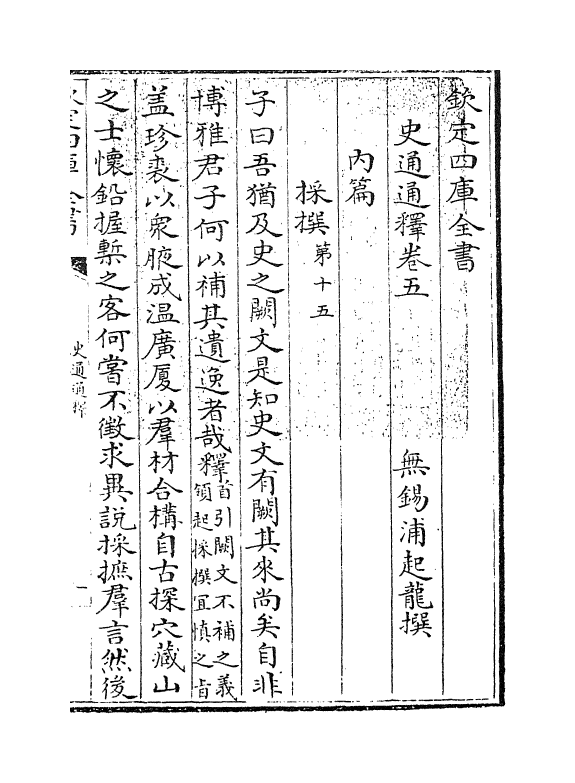 欽定四庫全書
史通通釋卷五
無錫浦起龍撰
内篇
採撰第十五
子曰吾猶及史之闕文是知史文有闕其來尚矣自非
博雅君子何以補其遺逸者哉釋首引闕文不補之義領起採撰宜慎之旨
盖珍裘以衆腋成温廣厦以羣材合構自古探穴藏山
之士懷鉛握槧之客何嘗不徵求異說採摭羣言然後
欽定四庫全書
史通通釋
一